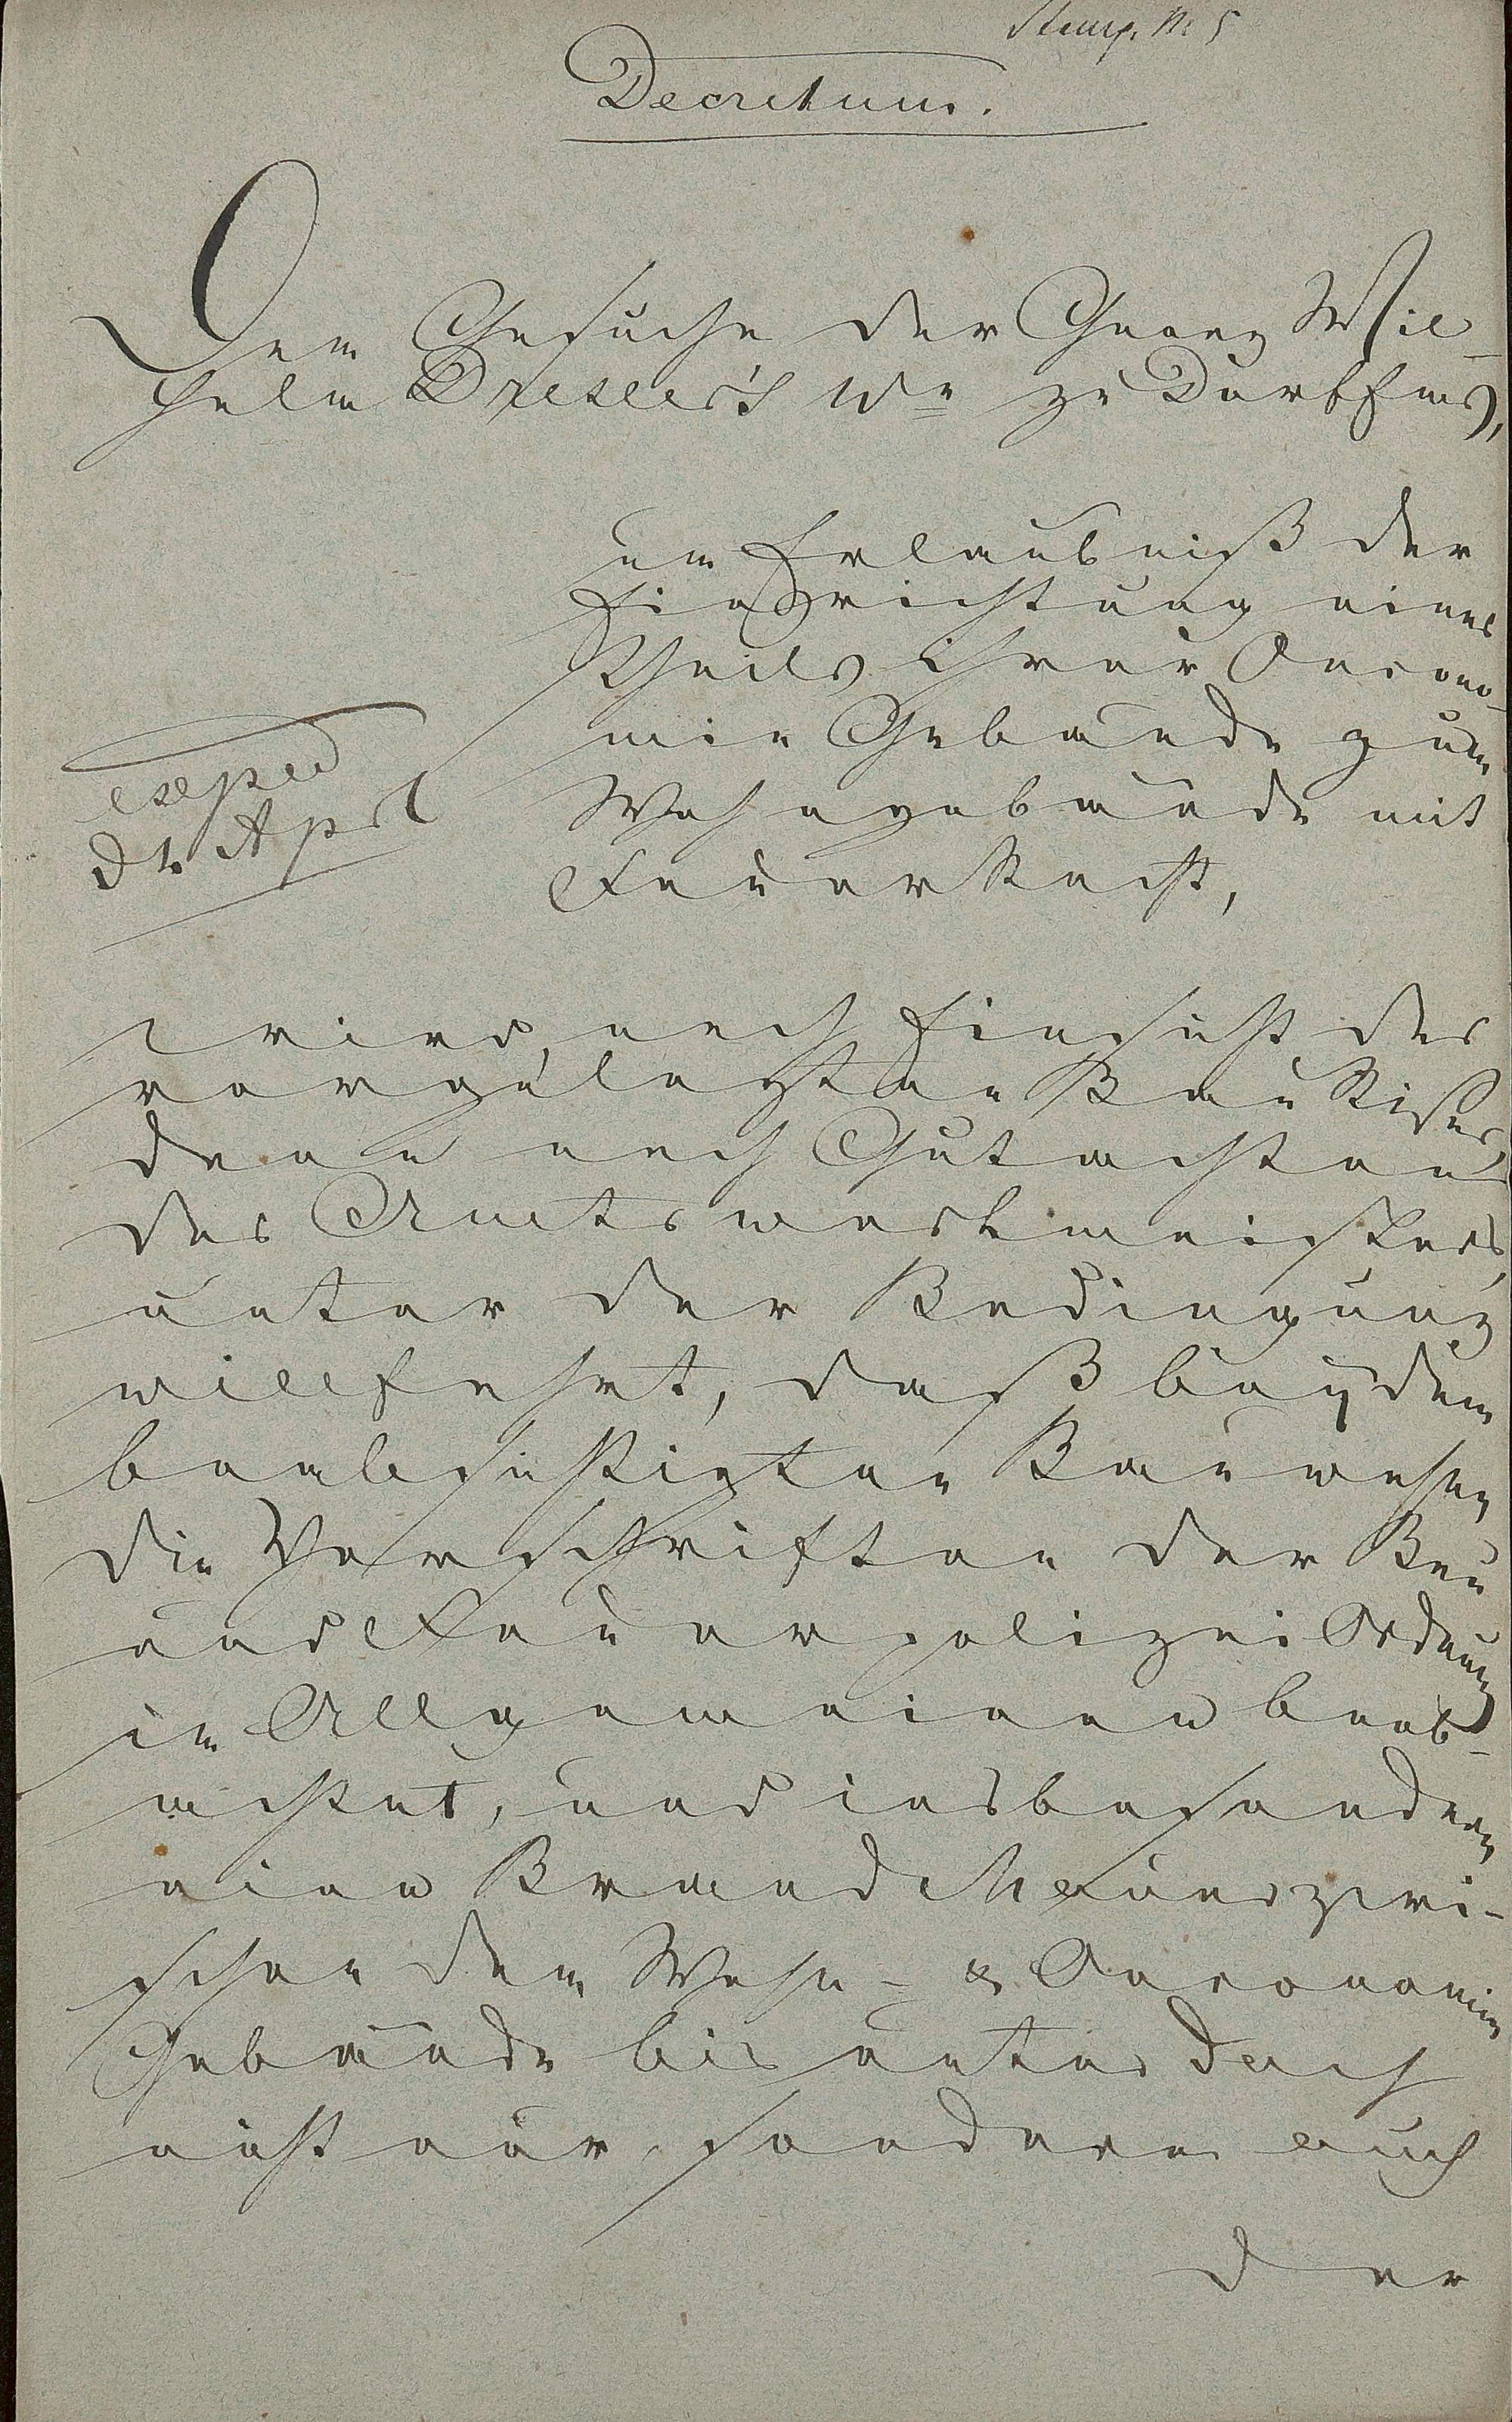 Stemp. N. 5
Decretum.
Dem Gesuche der Georg Wil-
helm Drexler's We zu
um Erlaubniß der
Einrichtung eines
Theils ihrer Oecono-
mie Gebäude zum
Wohngebäude mit
Feuer Recht,
exped
d 1. Apr
wird, nach Einsicht des
vorgelegten Bau Rißes
dann nach Gutachten
des Amtswerkmeisters,
unter der Bedingung
willfahrt, daß bey dem
beabsichtigten Bauwesen
die Vorschriften der Bau
und Feuerpolizei Ordnung
im Allgemeinen beob-
achtet, und insbesondern
eine Brand Mauer zwi-
schen dem Wohn- & Oeconomie
Gebäude bis unter Dach
nicht nur, sondern auch
der